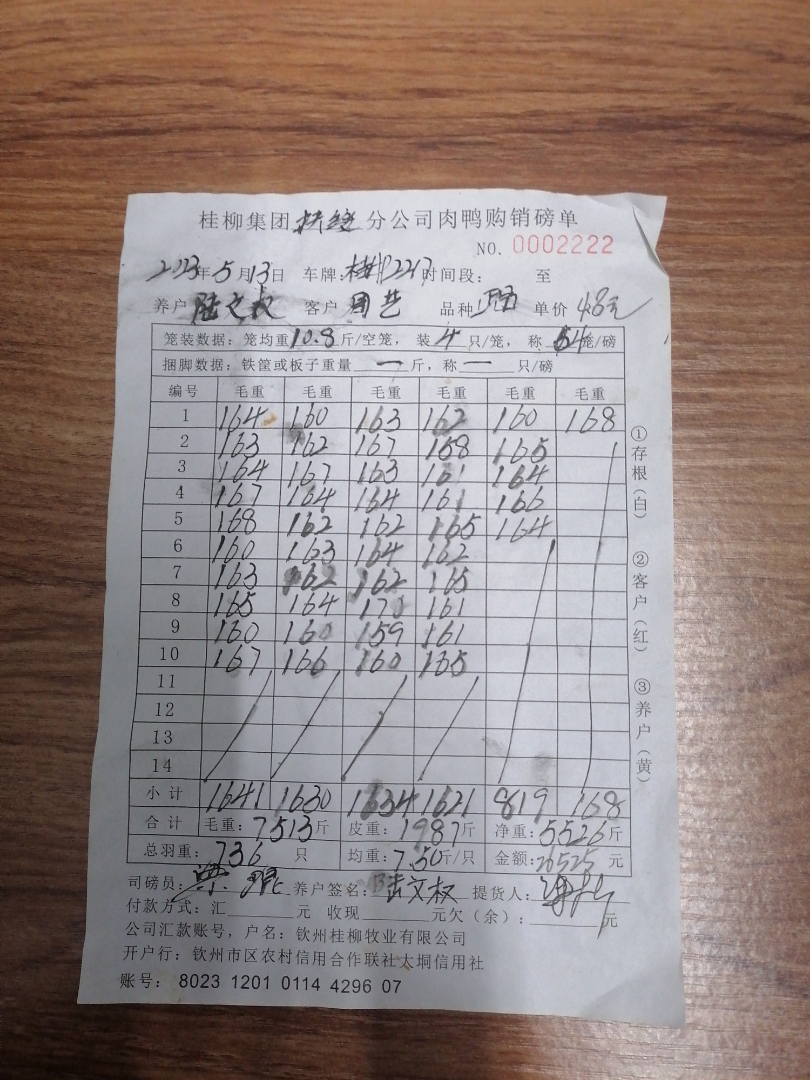 桂柳集团扶绥分公司肉鸭购销磅单
NO. 0002222
2023年5月13日 车牌:桂 2217 时间段: 至
养户 陆文权 客户 周艺 品种 单价 4.8元
笼装数据: 笼均重10.8斤/空笼, 装4只/笼, 称 4笼/磅
捆脚数据: 铁筐或板子重量 一 斤, 称 一 只/磅
编号 毛重 毛重 毛重 毛重 毛重 毛重
1 164 160 163 162 160 168
2 163 162 167 158 165
3 164 167 163 161 164
4 167 164 164 161 166
5 168 162 162 165 164
6 160 163 164 162
7 163 162 162 165
8 165 164 170 161
9 160 160 159 161
10 167 166 160 165
11
12
13
14
小计 1641 1630 1634 1621 819 168
合计 毛重:7513斤 皮重:1987斤 净重:5526斤
总羽重: 736 只 均重:7.50斤/只 金额:26525 元
司磅员: 养户签名: 陆文权 提货人:
付款方式: 汇 元 收现 元欠(余): 元
公司汇款账号, 户名: 钦州桂柳牧业有限公司
开户行: 钦州市区农村信用合作联社大垌信用社
账号: 8023 1201 0114 4296 07
①存根(白)
②客户(红)
③养户(黄)